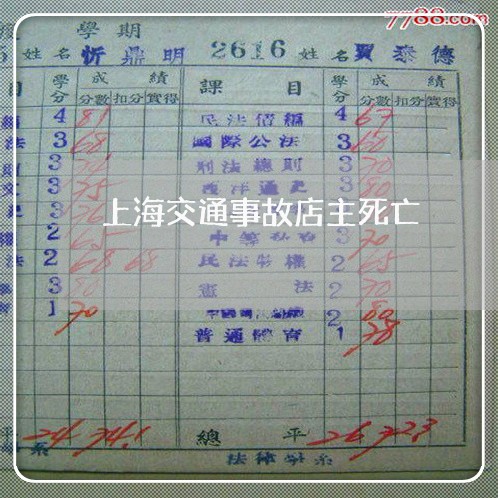 7788.com
學期
姓名 忻鼎明 2616 姓名 賈泰德
目 學分 成績 課目 學分 成績
分數 扣分 實得 分數 扣分 實得
4 81 民法債編 4 67
法 3 68 國際公法 3 60
3 刑法總則 3 70
3 75 西洋通史 3 80
3
上海交通事故店主死亡
2 65 3 70
法 2 68 68 民法物權 2 65
3 80 憲法 2 70
育 1 70 2 80
普通體育 1 78
平 24 74.1 總平 26 72.3
系 法律學系